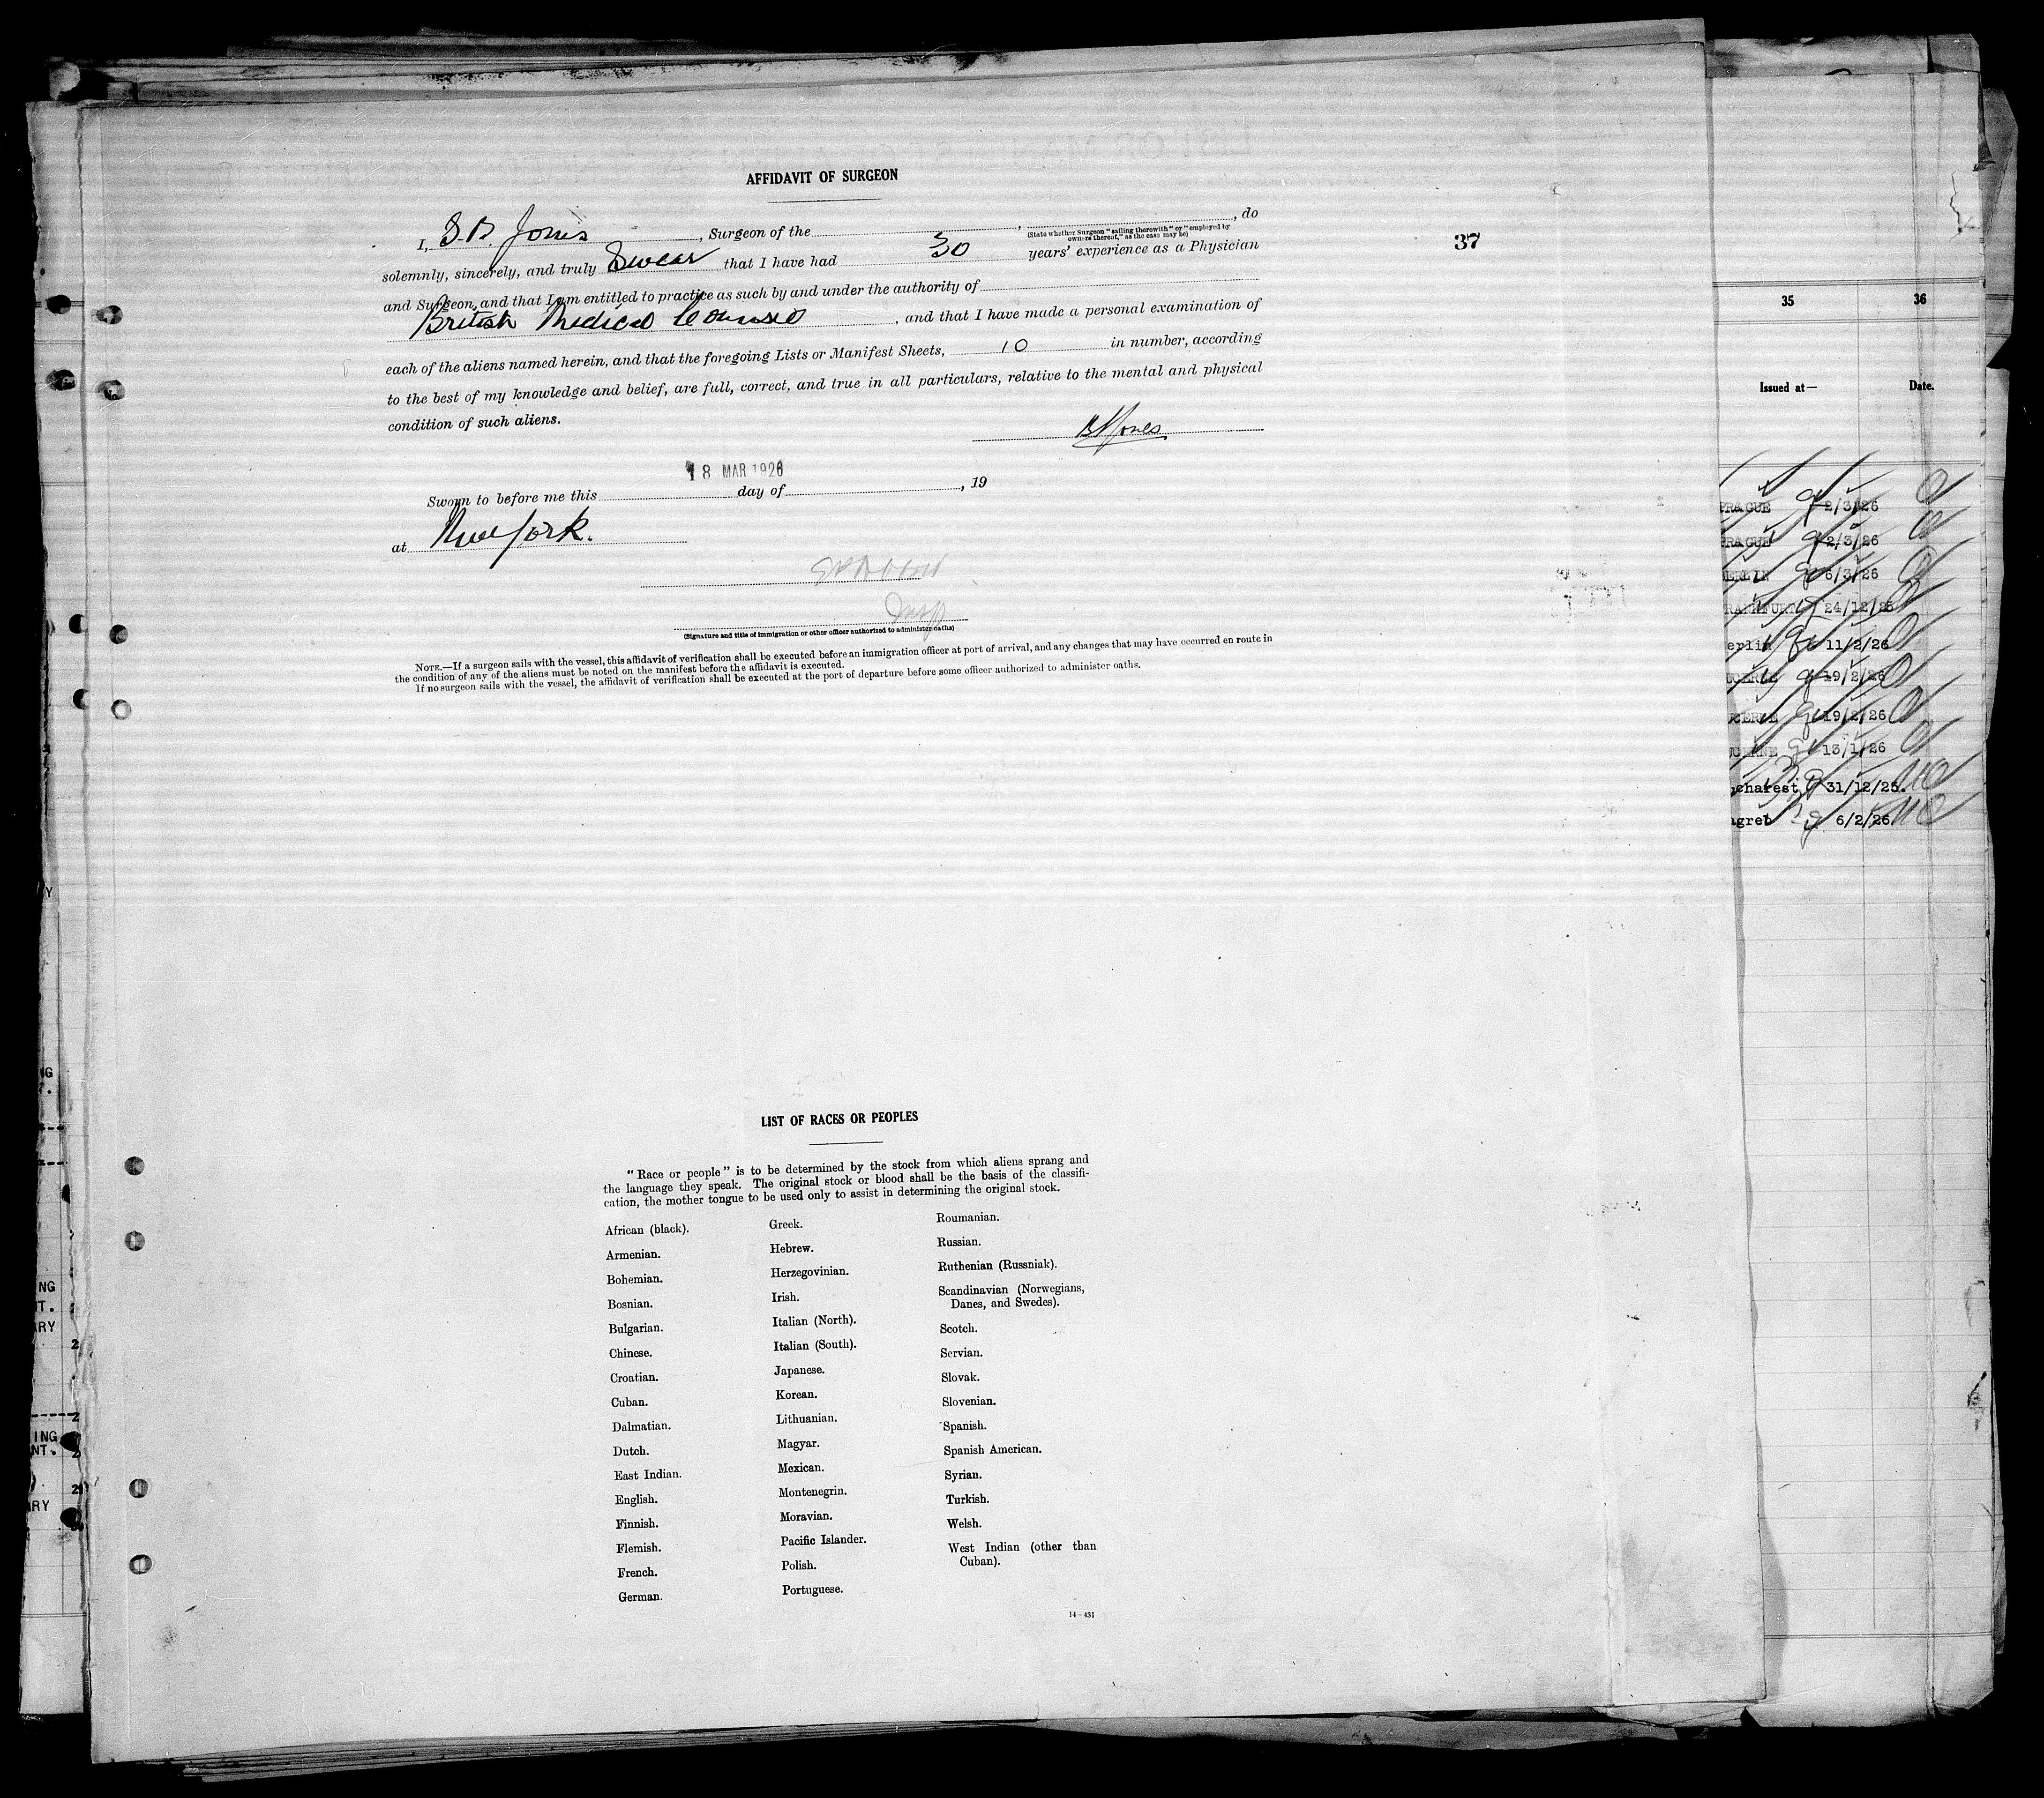 AFFIDAVIT OF SURGEON
I, S. B. Jones, Surgeon of the , , do
(State whether Surgeon "sailing therewith" or "employed by
owners thereof," as the case may be)
solemnly, sincerely, and truly Swear that I have had 30 years' experience as a Physician
and Surgeon, and that I am entitled to practice as such by and under the authority of
British Medical Council, and that I have made a personal examination of
each of the aliens named herein, and that the foregoing Lists or Manifest Sheets, 10 in number, according
to the best of my knowledge and belief, are full, correct, and true in all particulars, relative to the mental and physical
condition of such aliens.
Jones
18 MAR 1926
Sworn to before me this day of , 19
at New York.
Insp
(Signature and title of immigration or other officer authorized to administer oaths)
NOTE.—If a surgeon sails with the vessel, this affidavit of verification shall be executed before an immigration officer at port of arrival, and any changes that may have occurred en route in
the condition of any of the aliens must be noted on the manifest before the affidavit is executed.
If no surgeon sails with the vessel, the affidavit of verification shall be executed at the port of departure before some officer authorized to administer oaths.
37
LIST OF RACES OR PEOPLES
"Race or people" is to be determined by the stock from which aliens sprang and
the language they speak. The original stock or blood shall be the basis of the classifi-
cation, the mother tongue to be used only to assist in determining the original stock.
African (black).
Armenian.
Bohemian.
Bosnian.
Bulgarian.
Chinese.
Croatian.
Cuban.
Dalmatian.
Dutch.
East Indian.
English.
Finnish.
Flemish.
French.
German.
Greek.
Hebrew.
Herzegovinian.
Irish.
Italian (North).
Italian (South).
Japanese.
Korean.
Lithuanian.
Magyar.
Mexican.
Montenegrin.
Moravian.
Pacific Islander.
Polish.
Portuguese.
Roumanian.
Russian.
Ruthenian (Russniak).
Scandinavian (Norwegians,
Danes, and Swedes).
Scotch.
Servian.
Slovak.
Slovenian.
Spanish.
Spanish American.
Syrian.
Turkish.
Welsh.
West Indian (other than
Cuban).
14-431
35 36
Issued at— Date.
PRAGUE 2/3/26
PRAGUE 2/3/26
ERLIN 6/3/26
RANKFURT 24/12/25
erlin 11/2/26
UCERNE 19/2/26
UCERNE 19/2/26
UCERNE 13/1/26
charest 31/12/25.
agreb 6/2/26